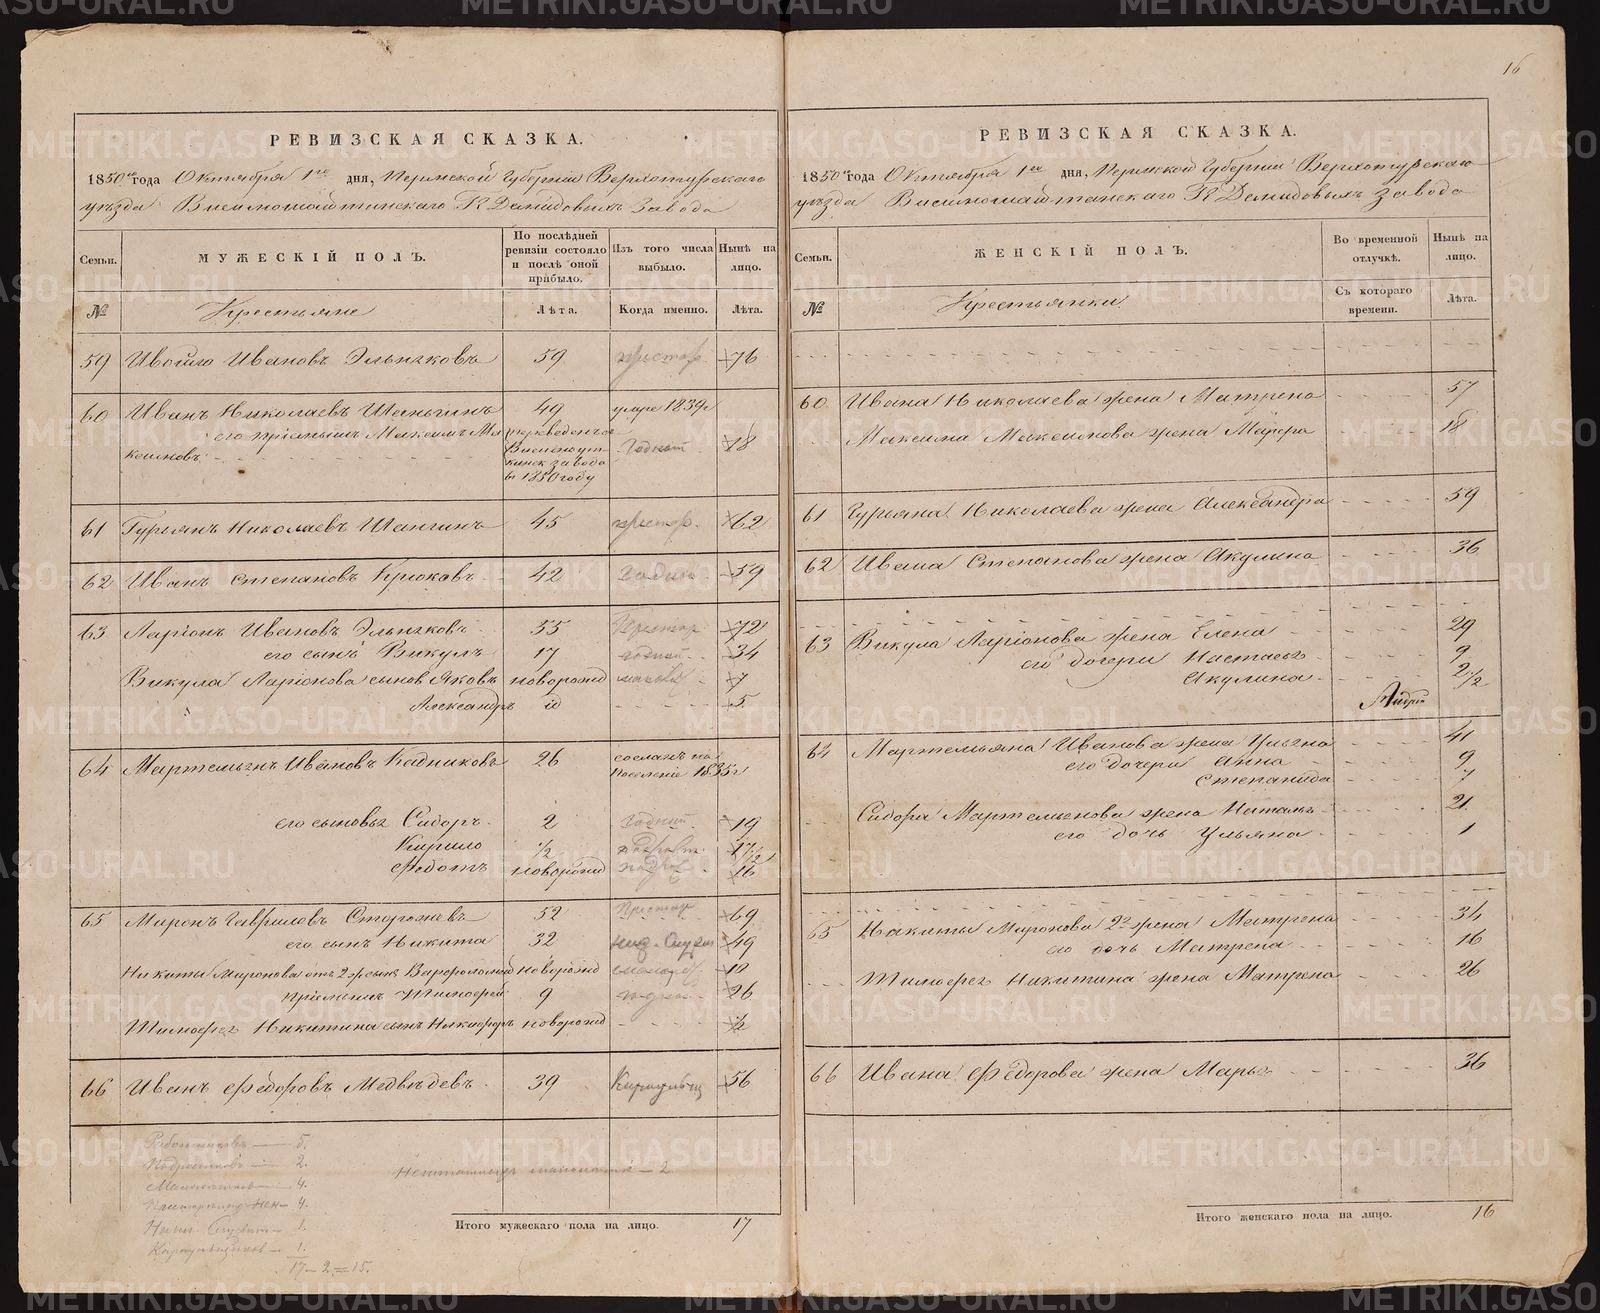 16
РЕВИЗСКАЯ СКАЗКА.
1850го года Октября 1го дня, Пермской Губернiи Верхотурскаго
уѣзда Висимошайтанскаго Г.г Демидовыхъ Завода
Семьи.
МУЖЕСКIЙ ПОЛЪ.
По послѣдней ревизiи состояло и послѣ оной прибыло.
Изъ того числа выбыло.
Нынѣ на лицо.
№
Крестьяне
Лѣта.
Когда именно.
Лѣта.
59 Ивойло Ивановъ 59 престар 76
60 Иванъ Николаевъ Шаньгинъ 49 умре 1839г
его прiемышъ Максимъ Ма переведенъ съ
ксимовъ Висимоут- годной 18
кинск завода
въ 1850 году
61 Гурьянъ Николаевъ Шангинъ 45 престар. 62
62 Иванъ Степановъ Крюковъ 42 годной 59
63 Ларiонъ Ивановъ 55 Престар 72
его сынъ Викулъ 17 годной 34
Викула Ларiонова сынов Яковъ новорожд малолѣ 7
Александръ 5
64 Мартемьянъ Ивановъ Кадниковъ 26 сосланъ на
поселенiе 1835г
его сыновья Сидоръ 2 годный 19
Кирило 1/2 17 1/2
Федотъ новорожд подрос 16
65 Миронъ Гавриловъ Сторожевъ 52 Престар 69
его сынъ Никита 32 49
Никиты Миронова отъ 2 ж сынъ Варфоломей новорожд малол 10
прiемышъ Тимофей 9 годной 26
Тимофея Никитина сынъ Никифоръ новорожд 1/2
66 Иванъ Федоровъ Медвѣдевъ 39 Караульщ 56
Работниковъ — 5.
Подростковъ — 2.
Малолѣтковъ — 4.
Престарѣлыхъ — 4.
— 1.
Караульщиков — 1.
17 — 2 = 15.
— 2
Итого мужескаго пола на лицо. 17
РЕВИЗСКАЯ СКАЗКА.
1850го года Октября 1го дня, Пермской Губернiи Верхотурскаго
уѣзда Висимошайтанскаго Г.г Демидовыхъ Завода
Семьи.
ЖЕНСКIЙ ПОЛЪ.
Во временной отлучкѣ.
Нынѣ на лицо.
№
Крестьянки
Съ котораго времени.
Лѣта.
60 Ивана Николаева жена Матрена 57
Максима Максимова жена Марфа 18
61 Гурьяна Николаева жена Александра 59
62 Ивана Степанова жена Акулина 36
63 Викула Ларiонова жена Елена 29
его дочери Настасья 9
Акулина 2 1/2
64 Мартемьяна Иванова жена Ульяна 41
его дочери Анна 9
Степанида 7
Сидора Мартемьянова жена Наталья 21
его дочь Ульяна 1
65 Никиты Миронова 2я жена Матрена 34
его дочь Матрена 16
Тимофея Никитина жена Матрена 26
66 Ивана Федорова жена Марья 36
Итого женскаго пола на лицо. 16
METRIKI.GASO-URAL.RU